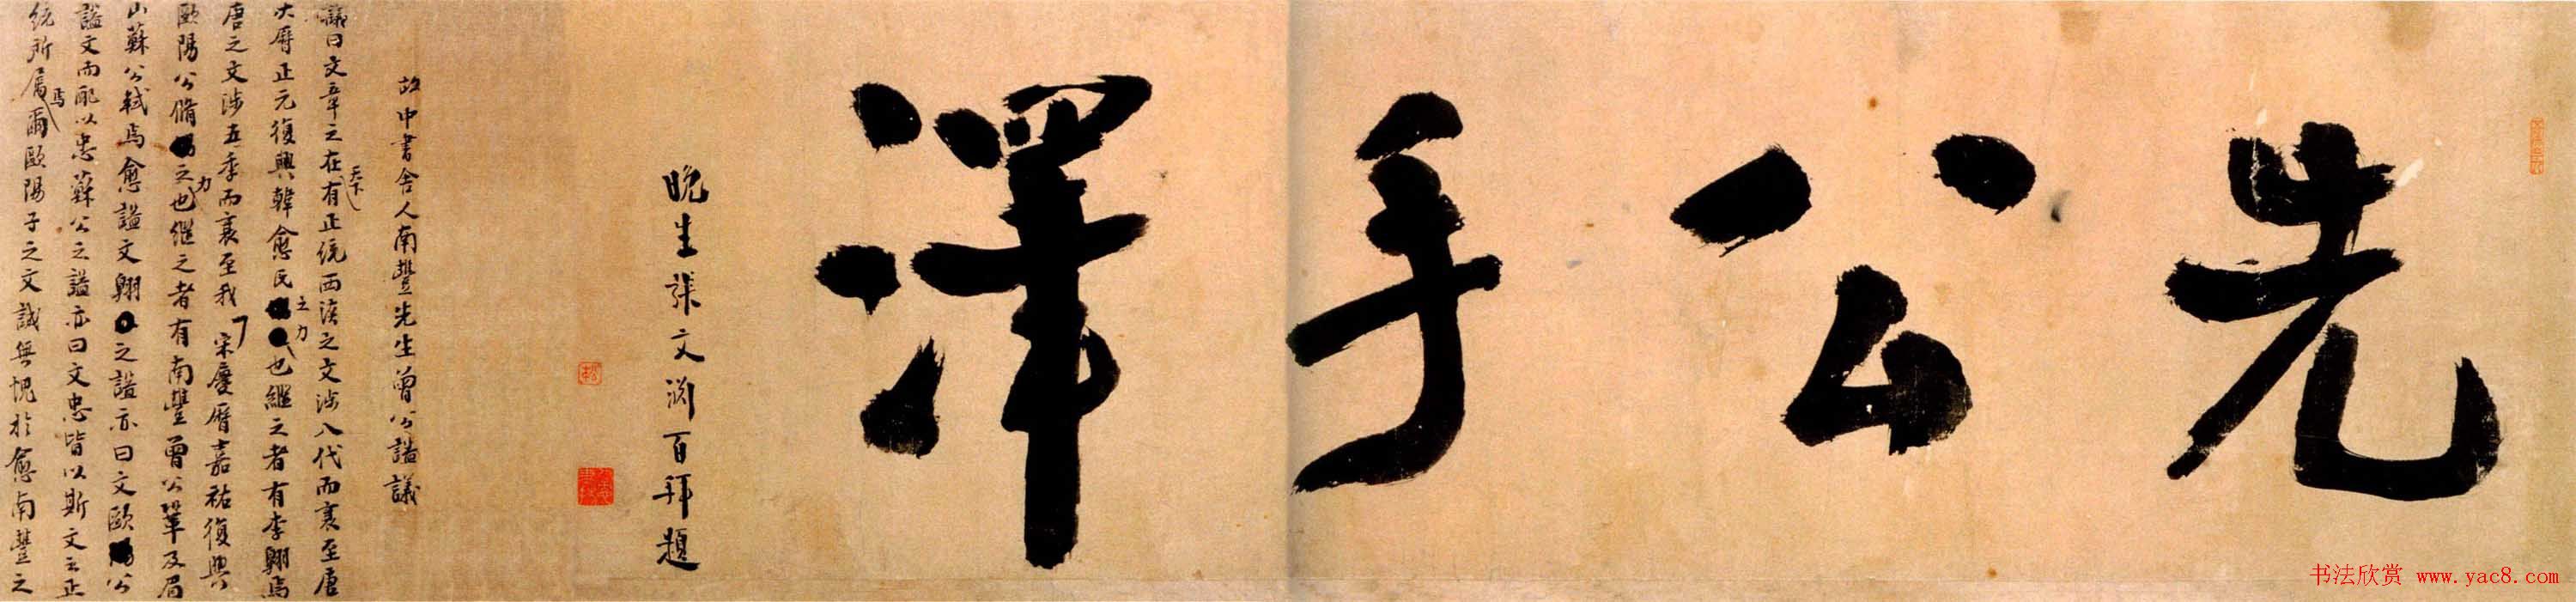 先公手澤
晚生張文淵百拜題
故中書舍人南豐先生曾公謚議
議曰文章之在天下有正統西漢之文涉八代而衰至唐
大曆正元復興韓愈氏之力也繼之者有李翱焉
唐之文涉五季而衰至我宋慶曆嘉祐復興
歐陽公脩之力也繼之者有南豐曾公鞏及眉
山蘇公軾焉愈謚文翱之謚亦曰文歐公
謚文而配以忠蘇公之謚亦曰文忠皆以斯文之正
統所屬焉爾歐陽子之文誠無愧於愈南豐之
书法欣赏 www.yac8.com